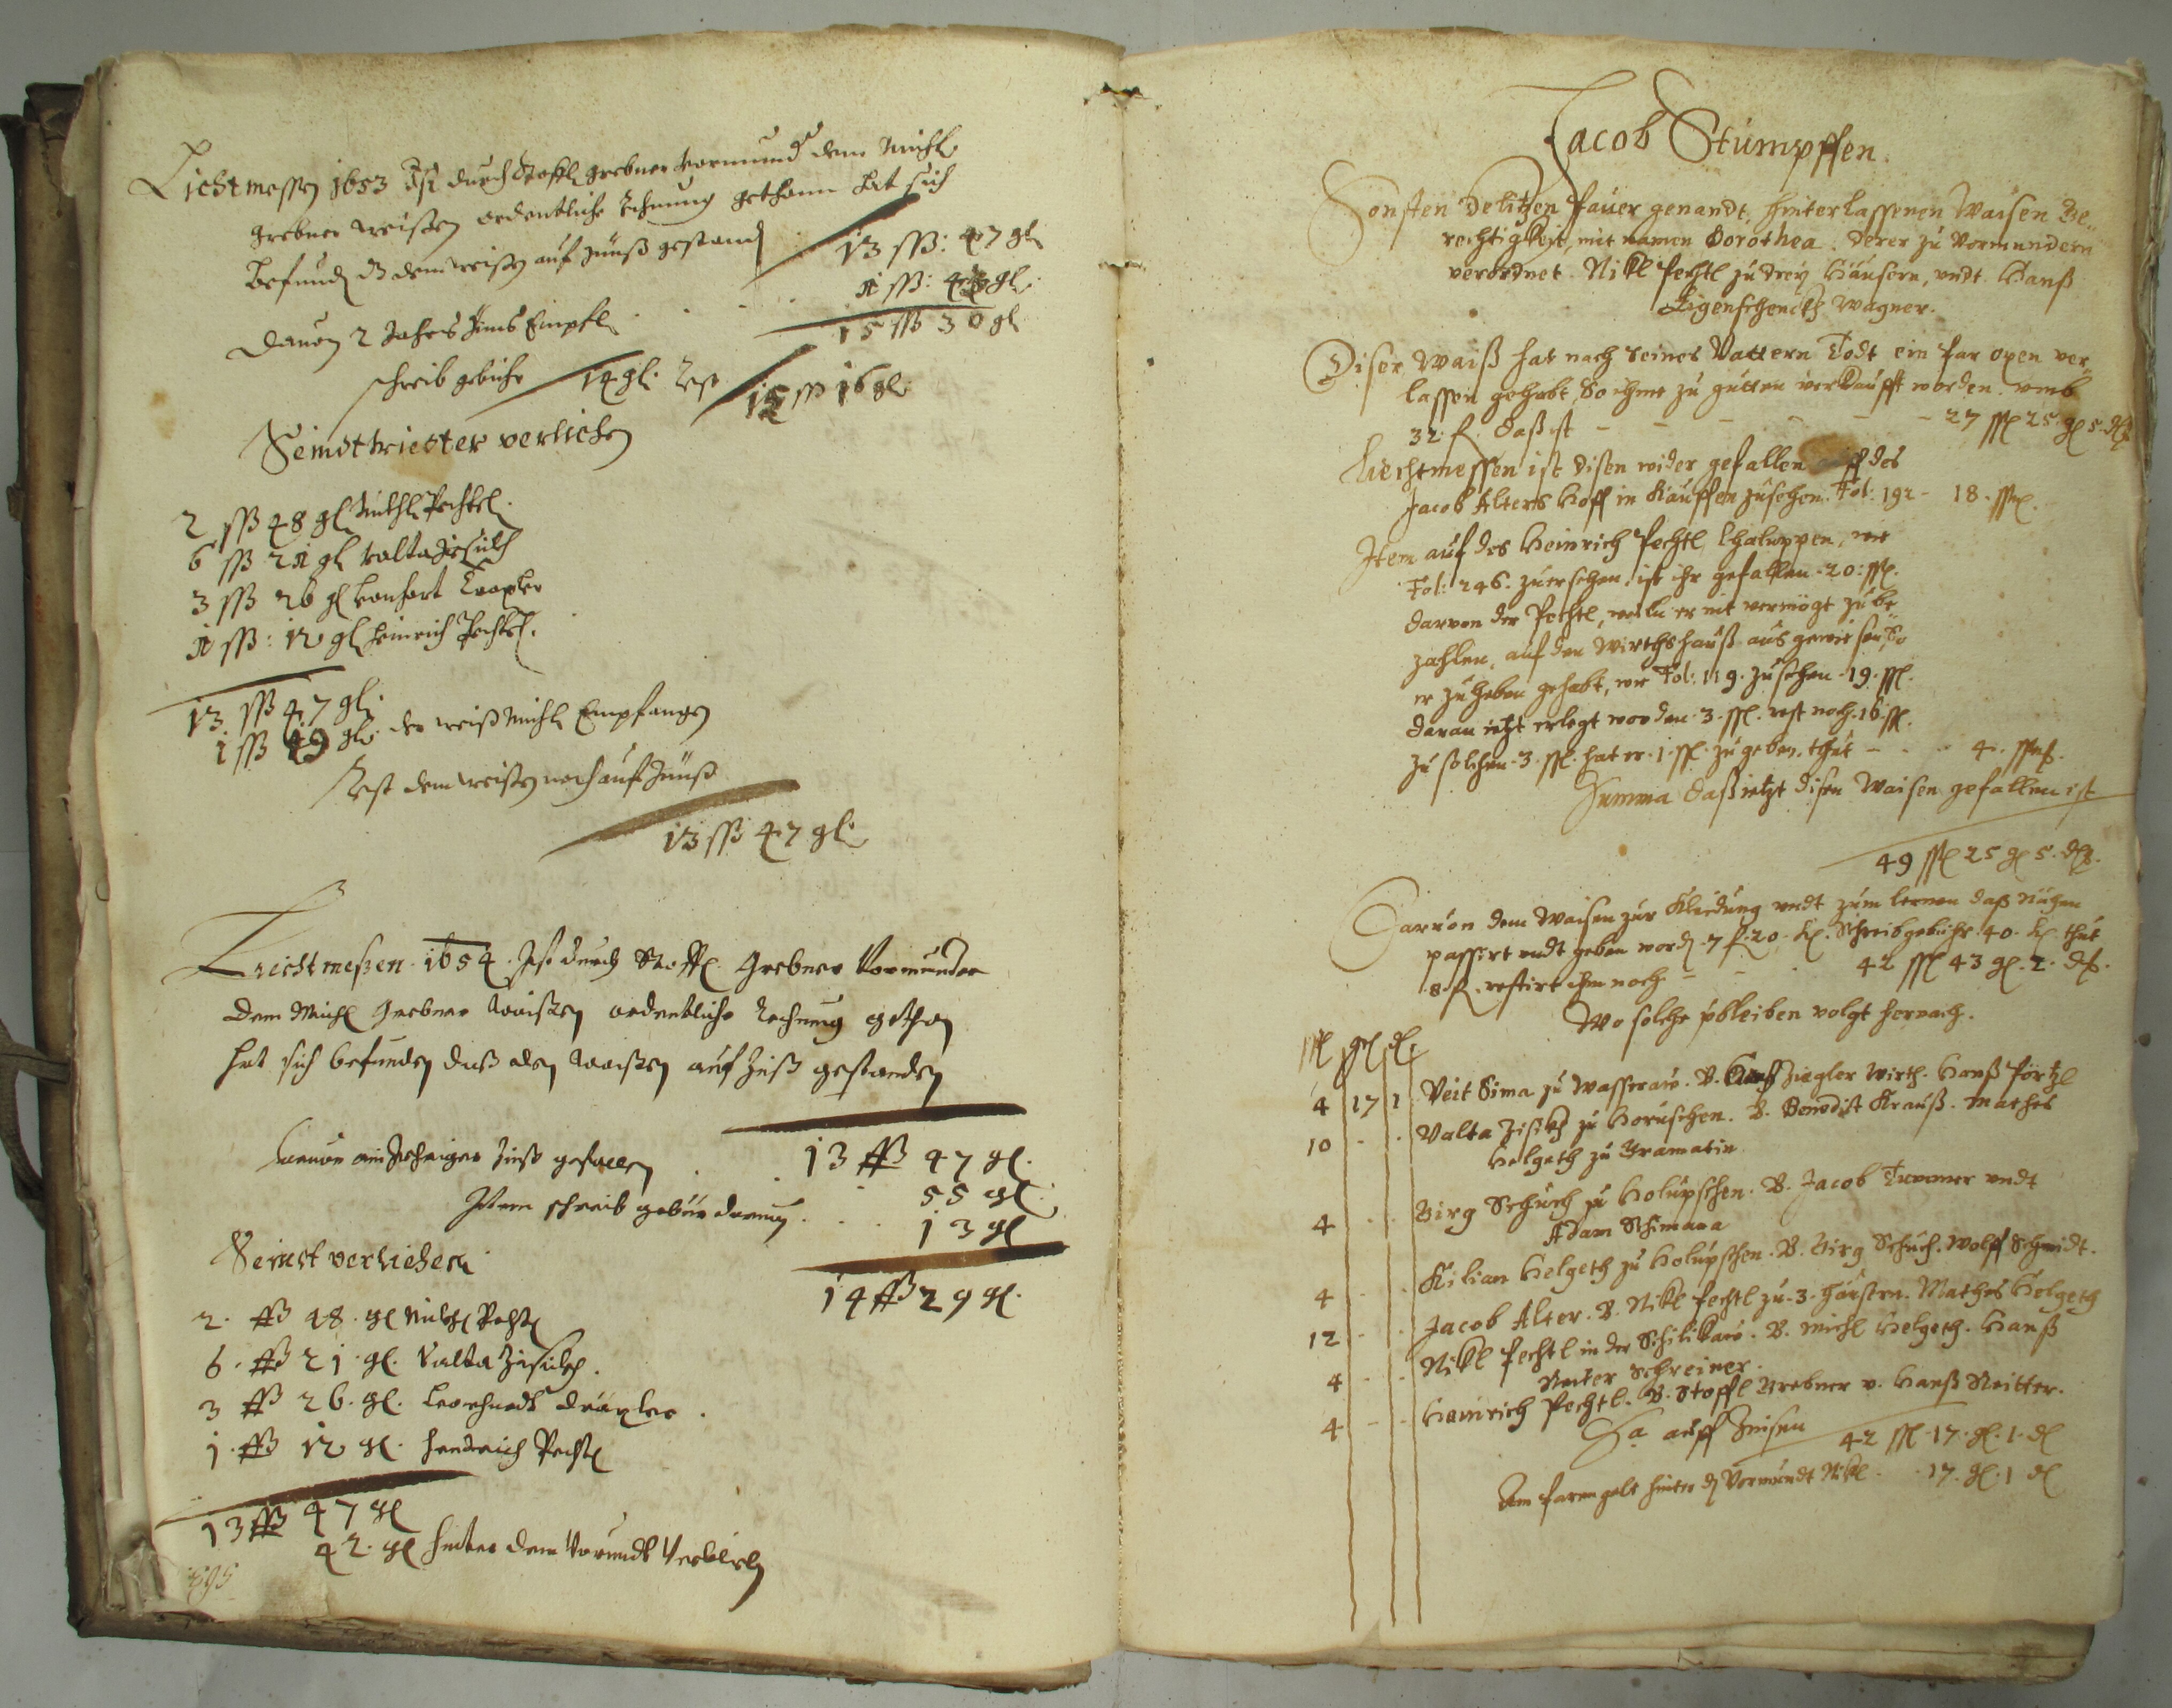 Lichtmessen 1653 Ist durch Stoffl Grebner Vormund dem Michl
Grebner weißen ordentliche Rechnung gethann hat sich
befunden dz dem weißen auf Zinnß gestand
13 ßß: 47 gl
Davon 2 Jahres Zinns Empfl
1 ßß: 43 gl
15 ßß 30 gl
schreib gebühr 14 gl. Rest 15 ßß 16 gl.
Seindt wieder verliehen
2 ßß 48 gl Michl Pechtl.
6 ßß 21 gl Valta Zisich
3 ßß 26 gl Leonhart Draxler
1 ßß: 12 gl Heinrich Pechtl.
13 ßß 47 gl.
1 ßß 29 gl. der weiß Michl Empfangen
Rest dem weißen noch auf Zinnß
13 ßß 47 gl.
Liechtmeßen. 1654. Ist durch Stoffl. Grebner Vormunder
dem Michl Grebner Waißen ordentliche Rechnung gethan
hat sich befunden daß den Waißen auf Zinß gestanden
13 ßß 47 gl.
davon ein Jähriger Zinß gefallen . . 55 gl.
Item schreib gebür darvon . . . 13 gl
Seindt verliehen.
14 ßß 29 gl.
2. ßß 48. gl Michl Pechtl
6. ßß 21. gl. Valta Zisich.
3 ßß 26. gl. Leonhardt Draxler.
1. ßß 12 gl. Heinrich Pechtl
13 ßß 47 gl
42. gl hinter dem Vormundt Verbleib
595
Jacob Stümpffen.
Sonsten Delitzen Pauer genandt, hinterlassenen Waisen Ge„
rechtigkeit, mit namen Dorothea. derer zu Vormundern
verordnet. Nikl Pechtl zu drey Häusern, undt Hanß
Eigenschenckh Wagner.
Diser Waiß hat nach Seines Vattern Todt ein Par Oxen ver„
lassen gehabt, So ihme zu gutten verkaufft worden. umb
32. f. daß ist - - - - - 27 ßß 25 gl 5. d.
Liechtmessen ist disen wider gefallen auff des
Jacob Alters Hoff in Kauffen zusehen. Fol: 192 - 18. ßß.
Item auf des Heinrich Pechtl, Chaluppen, wie
Fol: 246. zuersehen, ist ihr gefallen 20: ßß.
darvon der Pechtl, weiln er nit vermögt zu be„
zahlen, auf den Wirthshauß aus gewisen, so
er zu heben gehabt, wie Fol: 119. zusehen. 19. ßß.
daran ietzt erlegt worden. 3. ßß. rest noch. 16 ßß.
Zu solchen 3. ßß. hat er. 1. ßß. zugeben. thut - - - 4. ßß.
Summa daß ietzt disen Waisen gefallen ist
49 ßß 25 gl 5. d.
Darvon dem Waisen zur Kleidung undt zum lernen daß nähen
passirt undt geben word. 7 f. 20. kl. Schreibgebühr. 40. kl. thut
8. f. restirt ihm noch - - . 42 ßß 43 gl. 2. d.
Wo solche pbleiben volgt hernach.
ßß gl d.
4 17 1 Veit Sima zu Wasseraw. B. Hanß Ziegler Wirth. Hanß Pörtzl
10 - . Valta Zisikh zu Horuschen. B. Benedict Krauß. Mathes
Helgeth zu Gramatin
4 - . Girg Schuch zu Holupschen. B. Jacob Trummer undt
Adam Schimana
4 - . Kilian Helgeth zu Holupschen. B. Girg Schuch. Wolff Schmidt.
12 - . Jacob Alter. B. Nikl Pechtl zu. 3. häusern. Mathes Helgeth
4 - - Nikl Pechtl in der Schilikaw. B. Michl Helgeth. Hanß
Schreiner.
4 - - Hainrich Pechtl. B. Stoffl Grebner v. Hanß Reitter.
Sa. auff Zinsen 42 ßß. 17. gl. 1. d
Am Paren gelt hinter d Vormundt Nikl . . 17. gl. 1 d